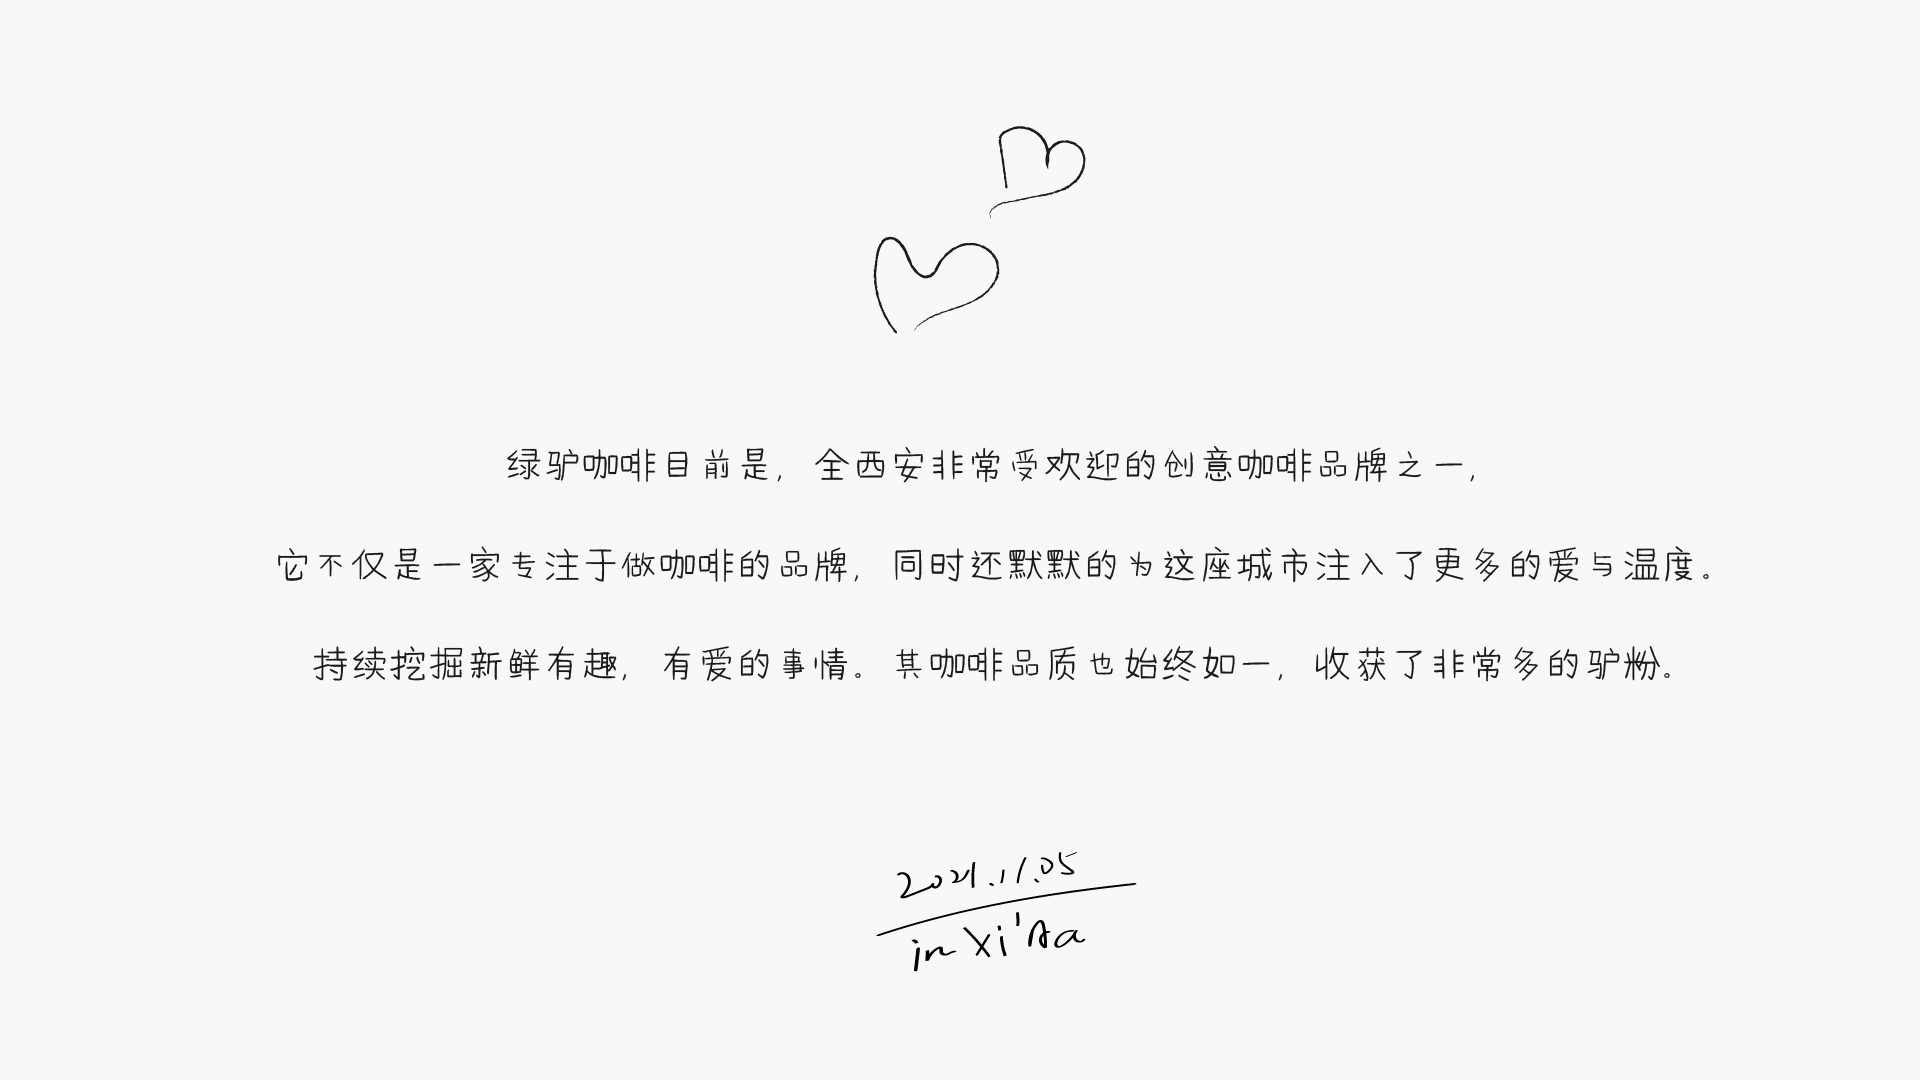 绿驴咖啡目前是，全西安非常受欢迎的创意咖啡品牌之一，
它不仅是一家专注于做咖啡的品牌，同时还默默的为这座城市注入了更多的爱与温度。
持续挖掘新鲜有趣，有爱的事情。其咖啡品质也始终如一，收获了非常多的驴粉。
2021.11.05
in Xi'Aa